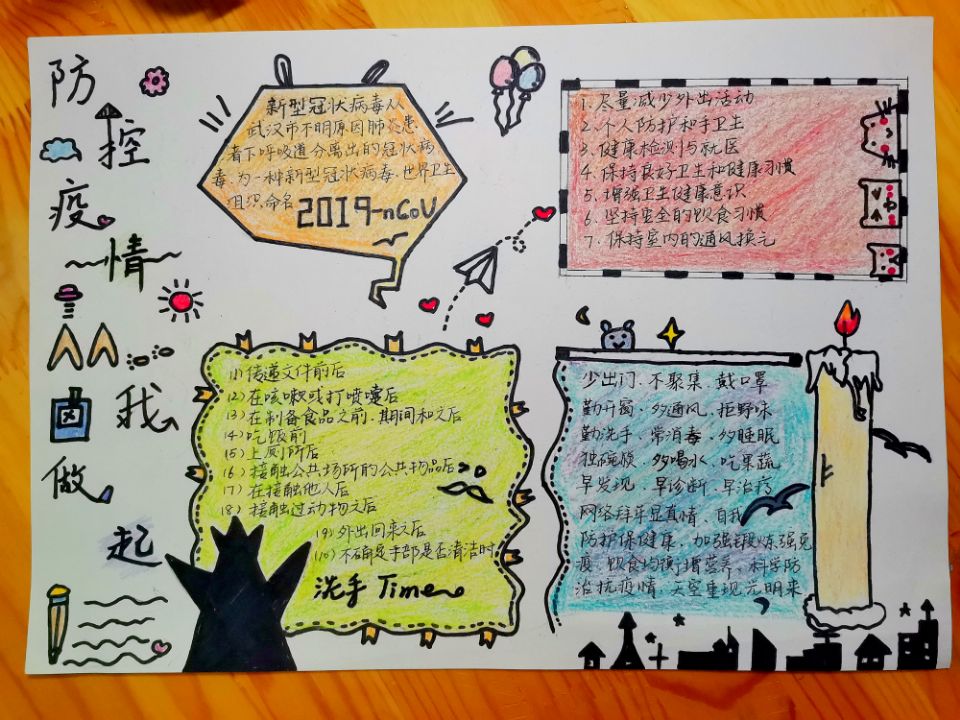 防
控
疫
情
从
我
做
起
新型冠状病毒从
武汉市不明原因肺炎患
者下呼吸道分离出的冠状病
毒,为一种新型冠状病毒.世界卫生
组织命名 2019-nCoV
1、尽量减少外出活动
2、个人防护和手卫生
3、健康检测与就医
4、保持良好卫生和健康习惯
5、增强卫生健康意识
6、坚持安全的饮食习惯
7、保持室内的通风换气
(1)传递文件前后
(2)在咳嗽或打喷嚏后
(3)在制备食品之前、期间和之后
(4)吃饭前
(5)上厕所后
(6)接触公共场所的公共物品后
(7)在接触他人后
(8)接触过动物之后
(9)外出回来之后
(10)不确定手部是否清洁时
洗手 Time
少出门、不聚集、戴口罩
勤开窗、多通风、拒野味
勤洗手、常消毒、多睡眠
独碗筷、多喝水、吃果蔬
早发现、早诊断、早治疗
网络拜年显真情、自我
防护保健康、加强锻炼强免
疫、饮食均衡增营养、科学防
治抗疫情、天空重现光明来